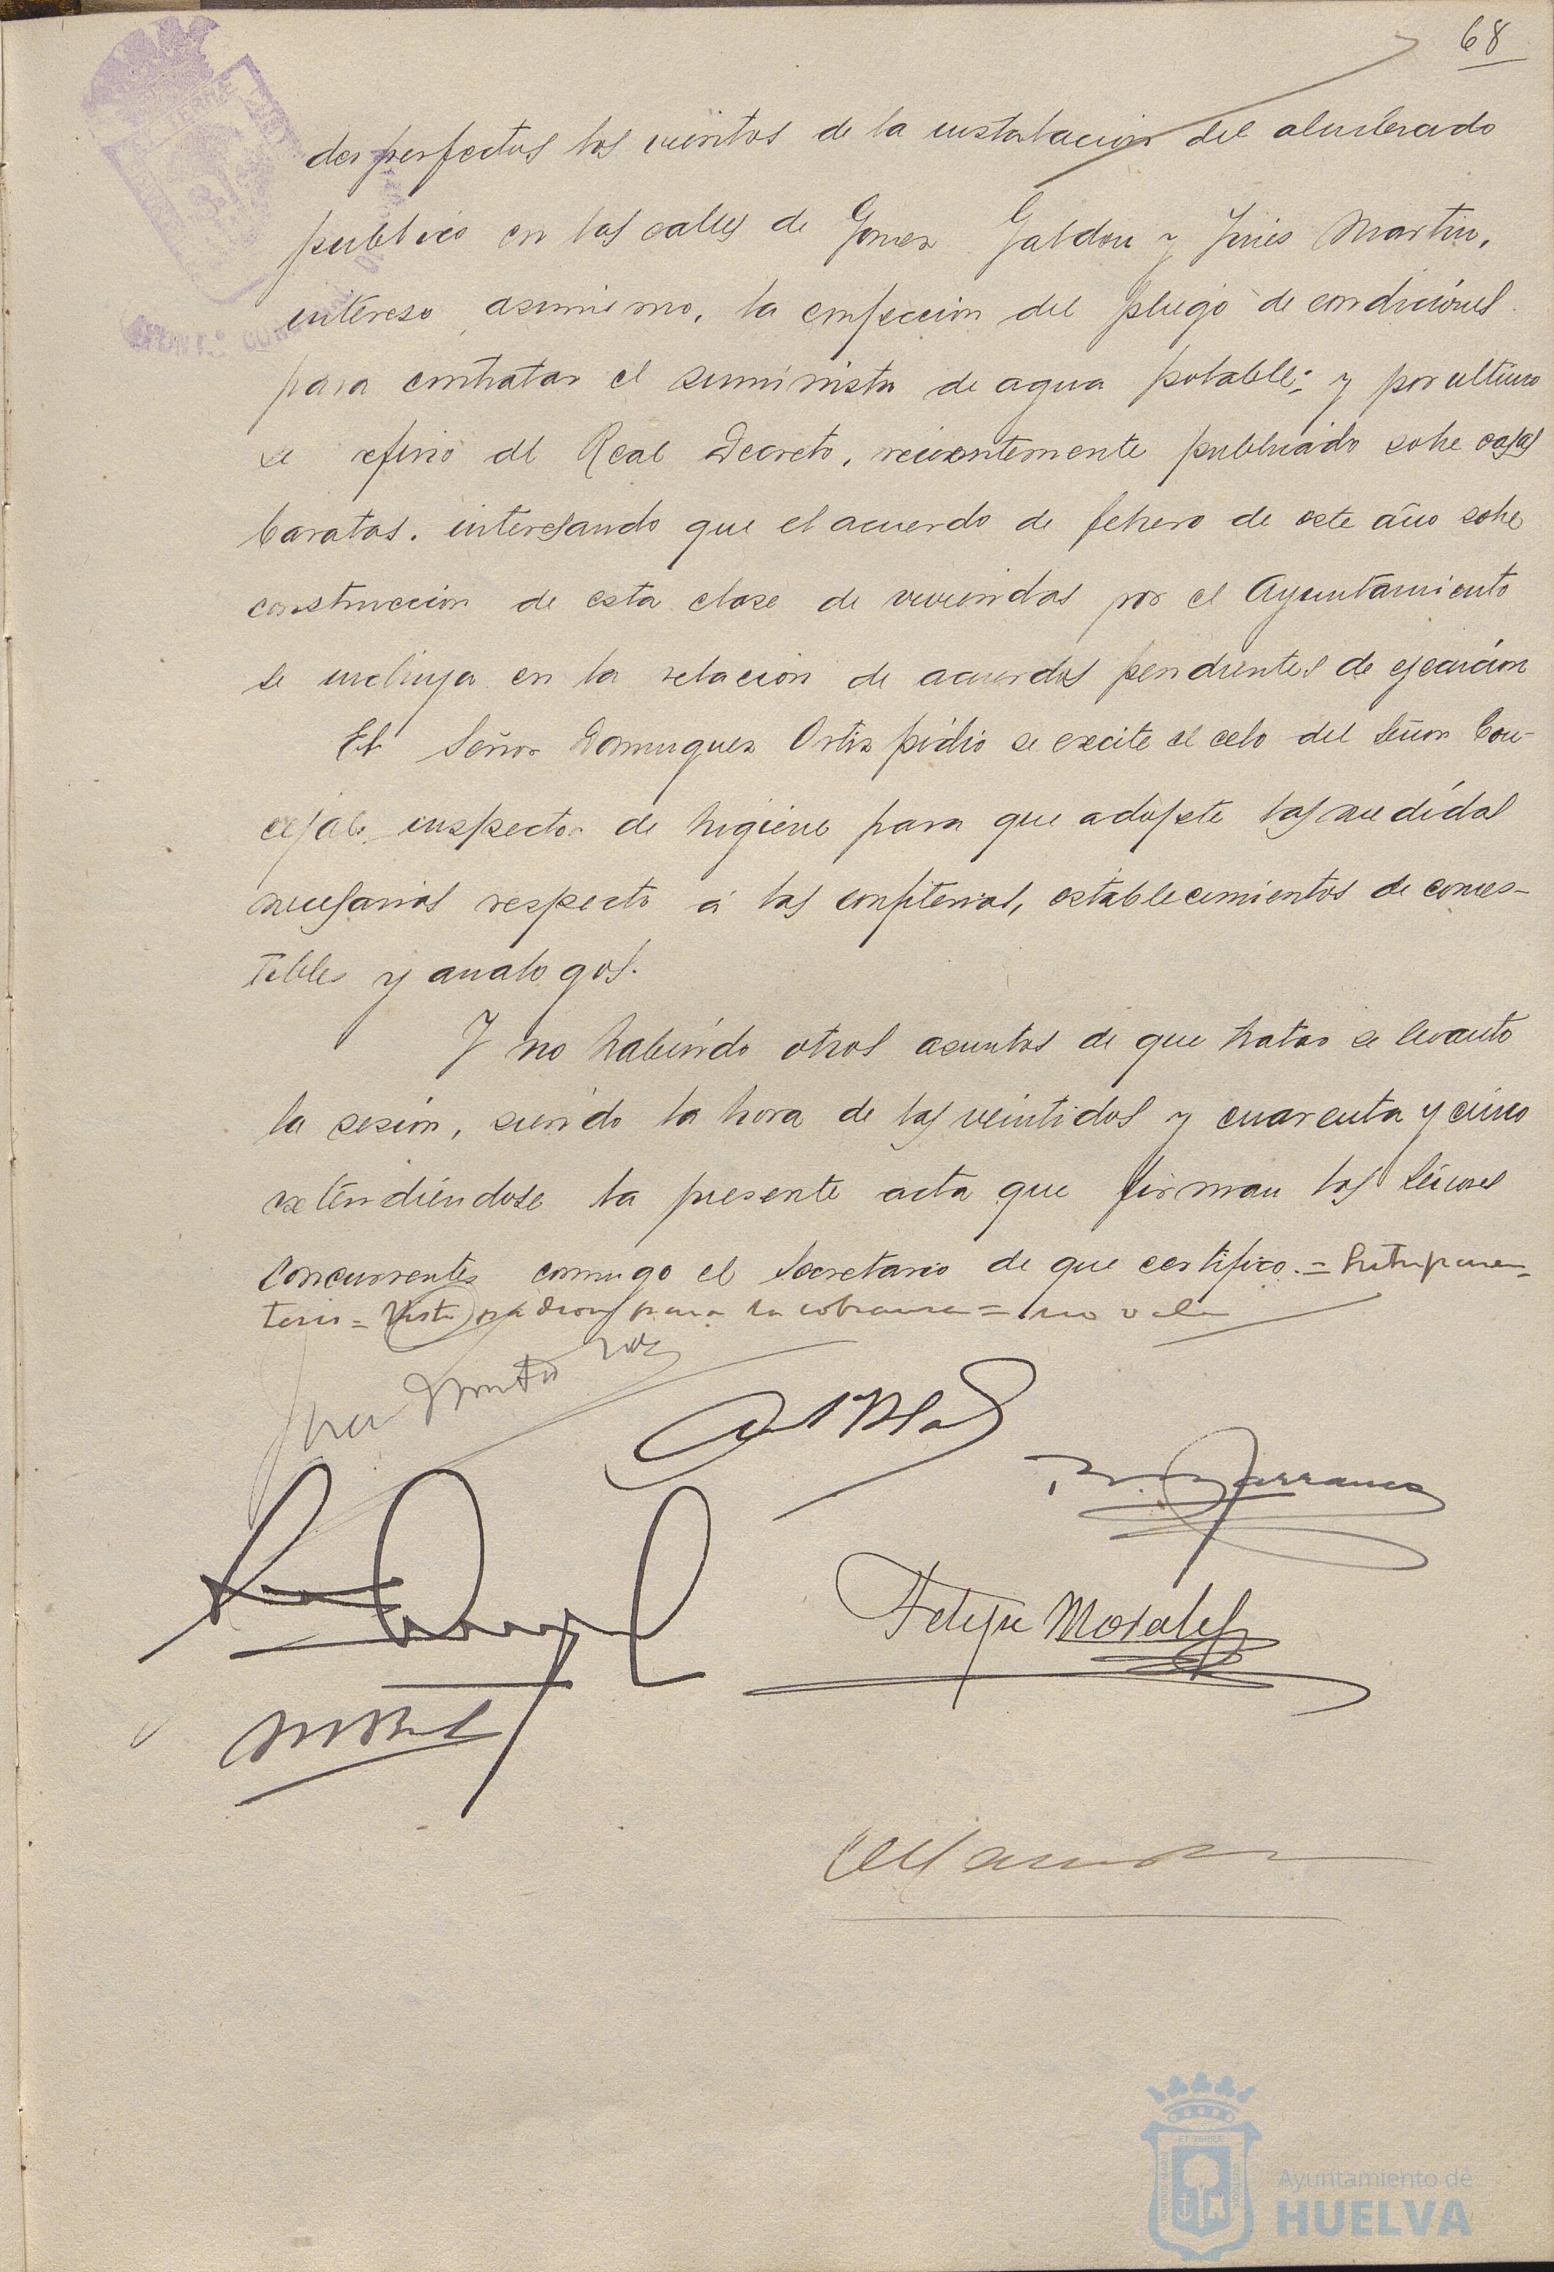 68
desperfectos los vientos de la instalacion del alumbrado
publico en las calles de Gomez Galdon y Gines Martin,
intereso asimismo, la confeccion del pliego de condiciones
para contratar el suministro de agua potable; y por ultimo
se refirio al Real Decreto, recientemente publicado sobre casas
baratas, interesando que el acuerdo de febrero de este año sobre
construccion de esta clase de viviendas por el Ayuntamiento
se incluya en la relacion de acuerdos pendientes de ejecución
El Señor Dominguez Ortiz pidio se excite el celo del Señor Con-
cejal inspector de higiene para que adopte las medidas
necesarias respecto á las confiterias, establecimientos de comes-
tibles y analogos.
Y no habiendo otros asuntos de que tratar se levanto
la sesion, siendo la hora de las veintidos y cuarenta y cinco
extendiéndose la presente acta que firman los Señores
Concurrentes conmigo el Secretario de que certifico.=Entreparen-
tesis= para la cobranza=no vale
Felipe Morales
Ayuntamiento de
HUELVA